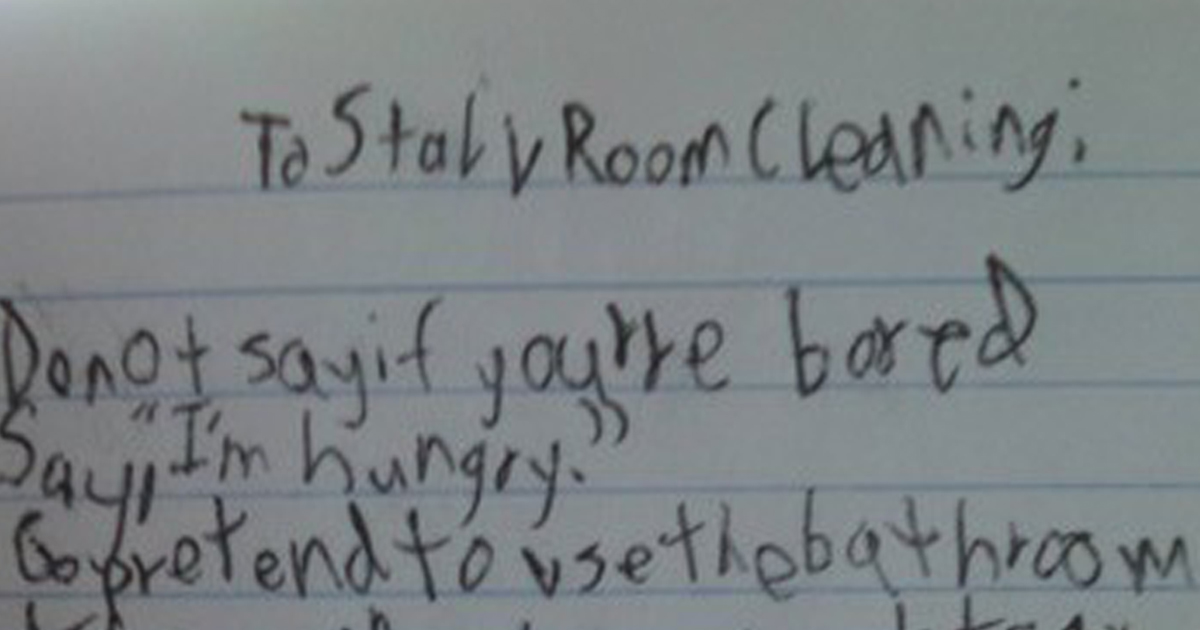 To Stall v Room Cleaning:
Do not say if you're bored
Say, "I'm hungry."
Go pretend to use the bathroom